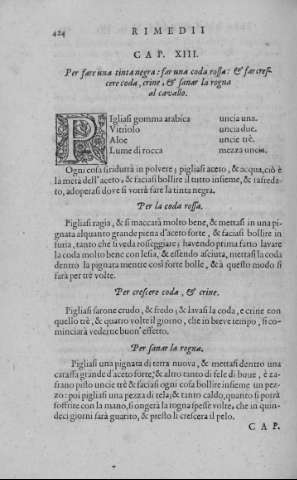 424
RIMEDII
CAP. XIII.
Per fare una tinta negra: far una coda rossa: & far cresc-
cere coda, crine, & sanar la rogna
al cavallo.
PIgliasi gomma arabica uncia una.
Vitriolo uncia due.
Aloe uncie trè.
Lume di rocca mezza uncia.
Ogni cosa si ridurrà in polvere; pigliasi aceto, & acqua, ciò è
la metà dell'aceto, & faciasi bollire il tutto insieme, & rafreda-
to, adoperasi dove si vorrà fare la tinta negra.
Per la coda rossa.
Pigliasi ragia, & si maccarà molto bene, & mettasi in una pi-
gnata alquanto grande piena d'aceto forte, & faciasi bollire in
furia, tanto che si veda rosseggiare; havendo prima fatto lavare
la coda molto bene con lesia, & essendo asciuta, mettasi la coda
dentro la pignata mentre così forte bolle, & à questo modo si
farà per trè volte.
Per crescere coda, & crine.
Pigliasi sarone crudo, & fredo; & lavasi la coda, e crine con
quello trè, & quatro volte il giorno, che in breve tempo, si co-
minciarà vederne buon'effetto.
Per sanar la rogna.
Pigliasi una pignata di terra nuova, & mettasi dentro una
caraffa grande d'aceto forte, & altro tanto di fele di boue, è za-
frano pisto uncie trè & faciasi ogni cosa bollire insieme un pez-
zo: poi pigliasi una pezza di tela, & tanto caldo, quanto si potrà
soffrire con la mano, si ongerà la rogna spesse volte, che in quin-
deci giorni sarà guarito, & presto li crescerà il pelo.
CAP.